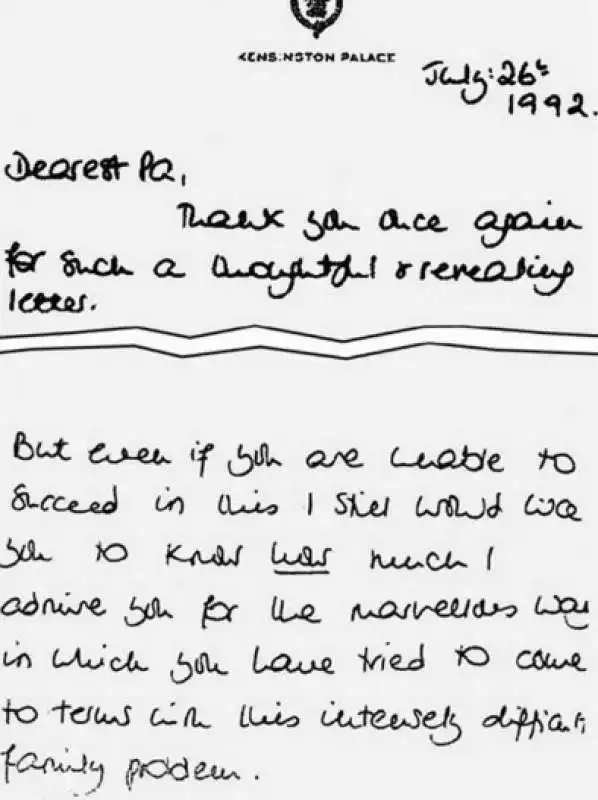 KENSINGTON PALACE
July: 26th
1992.
Dearest Pa,
Thank you once again
for such a thoughtful & revealing
letter.
But even if you are unable to
succeed in this I still would like
you to know how much I
admire you for the marvellous way
in which you have tried to come
to terms with this intensely difficult
family problem.